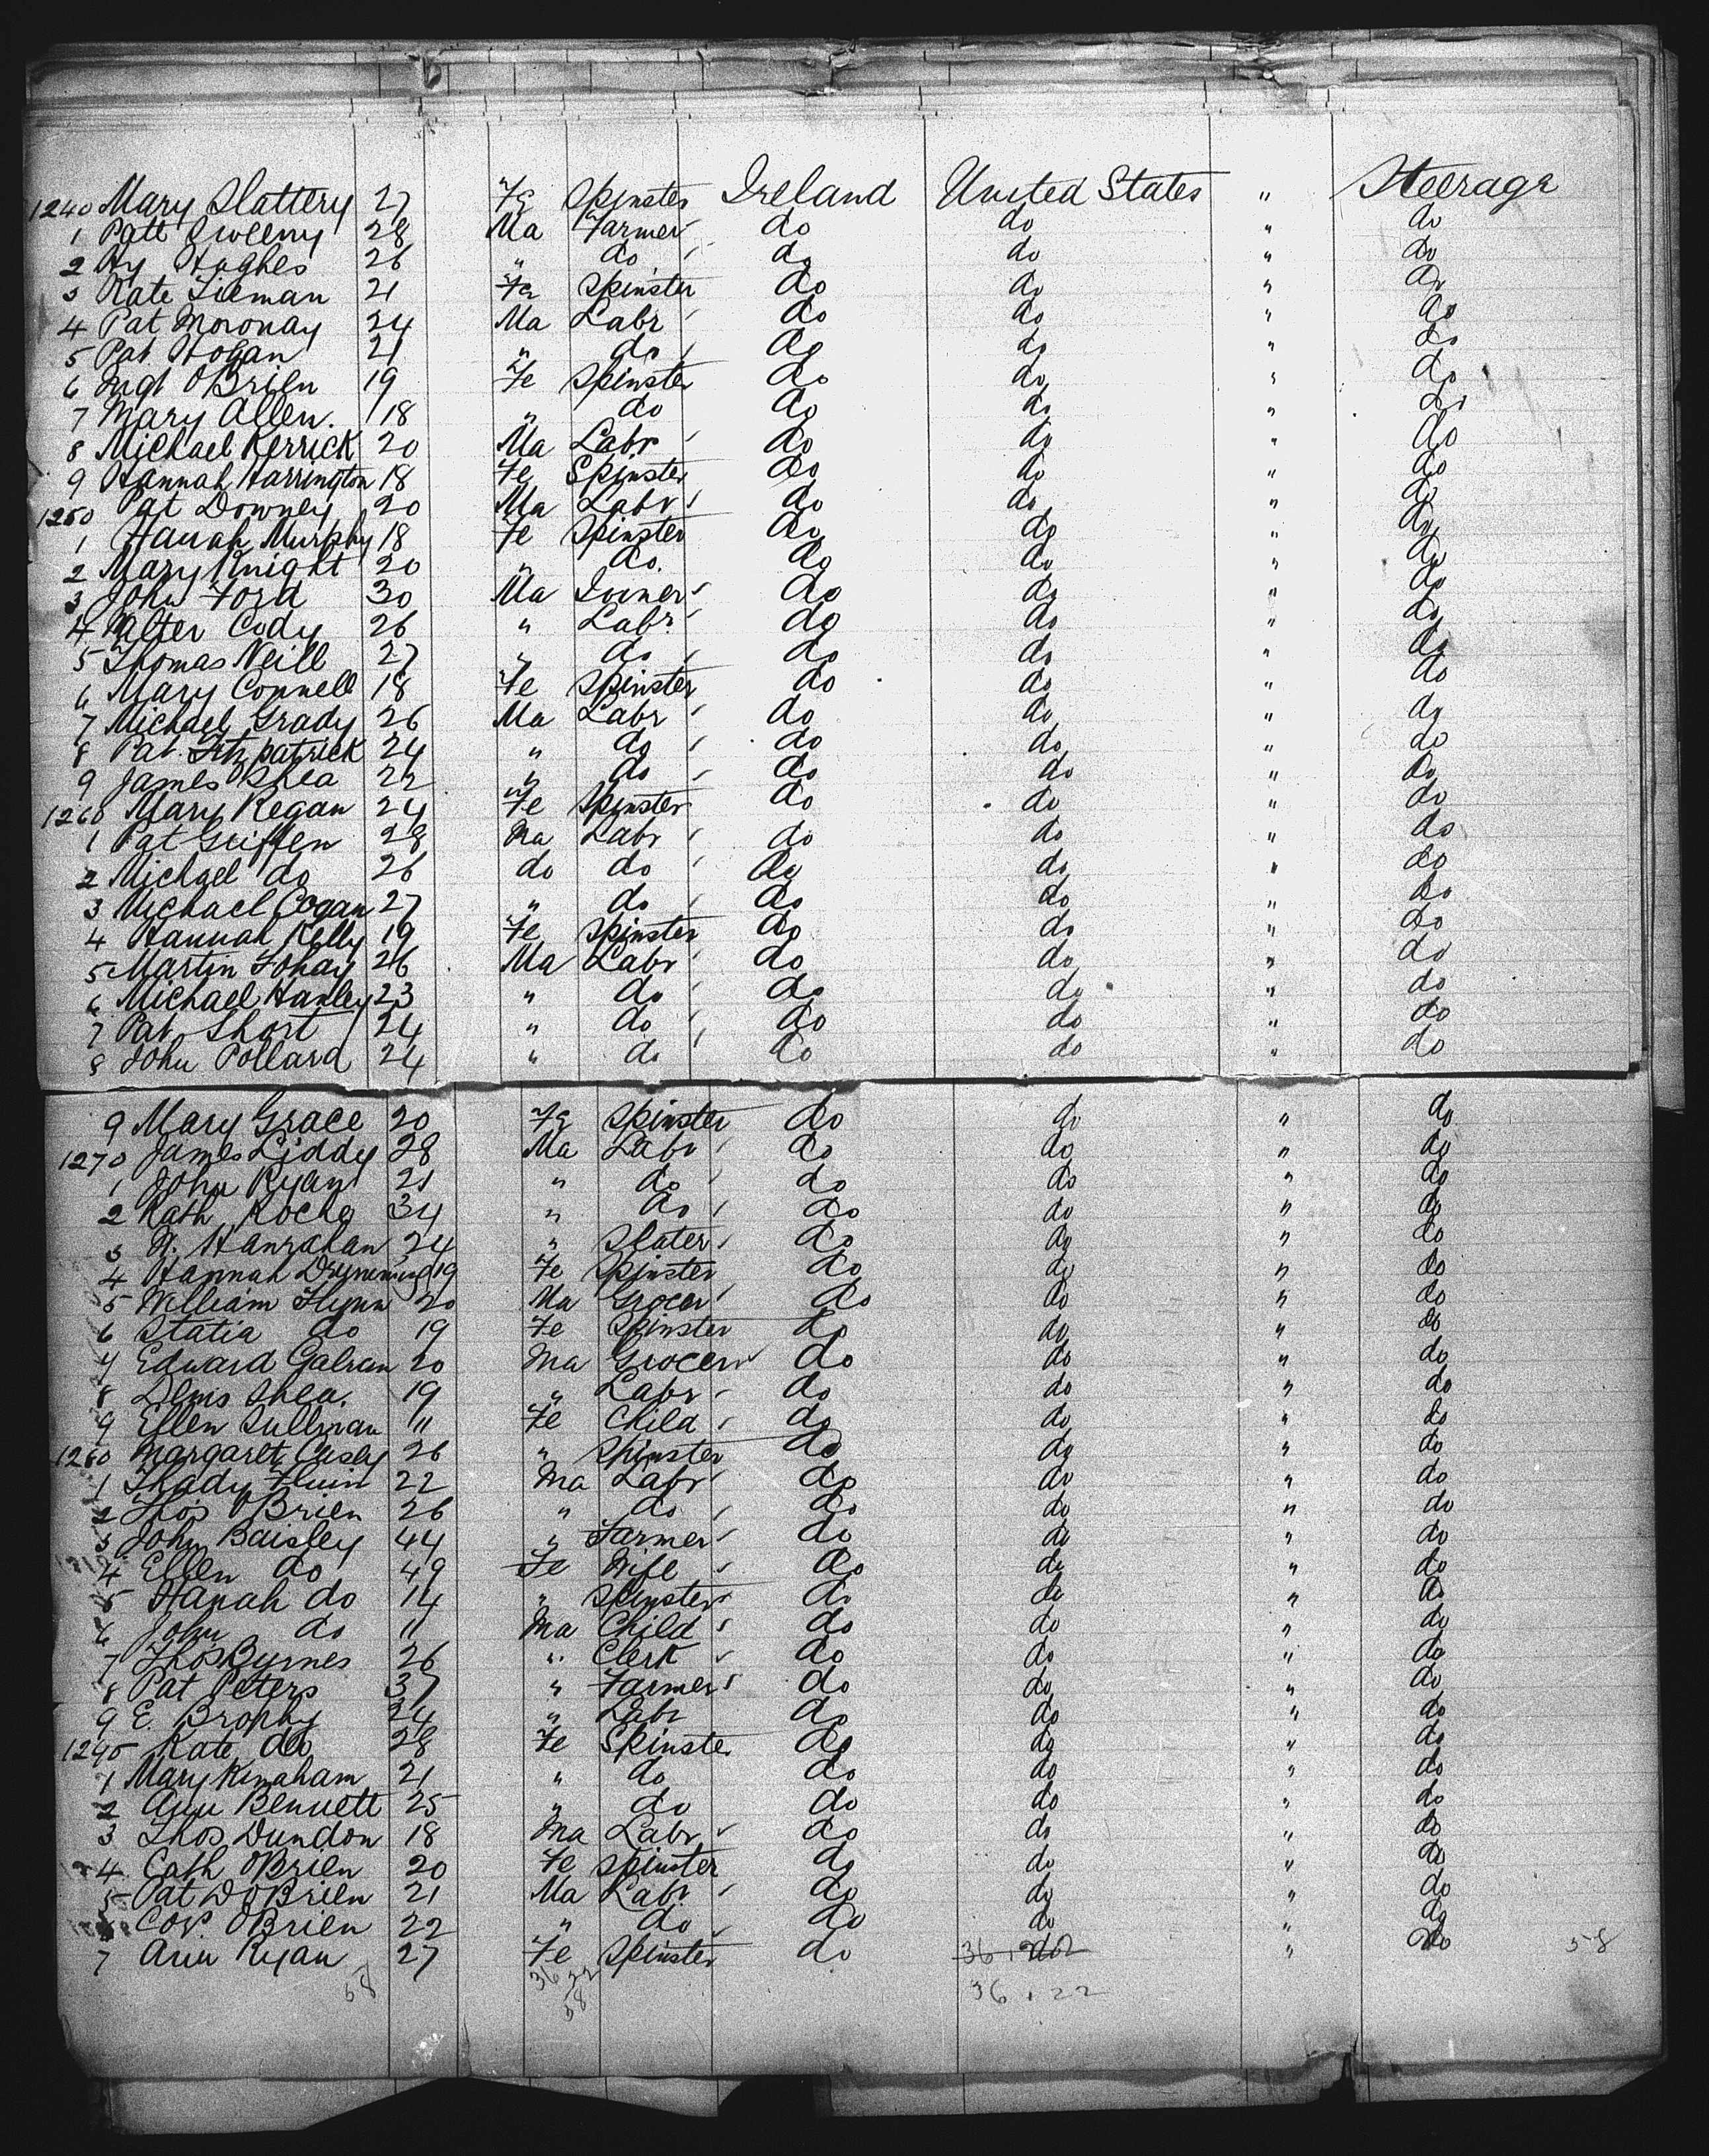 1240 Mary Slattery 27 Fe Spinster Ireland United States " Steerage
1 Patt Sweeny 28 Ma Farmer do do " do
2 Hy Hughes 26 " do do do " do
3 Kate Tieman 21 Fe Spinster do do " do
4 Pat Moronay 24 Ma Labr do do " do
5 Pat Hogan 21 " do do do " do
6 Mgt OBrien 19 Fe Spinster do do " do
7 Mary Allen. 18 " do do do " do
8 Michael Kerrick 20 Ma Labr do do " do
9 Hannah Harrington 18 Fe Spinster do do " do
1250 Pat Downey 20 Ma Labr do do " do
1 Hanah Murphy 18 Fe Spinster do do " do
2 Mary Knight 20 " do. do do " do
3 John Ford 30 Ma Joiner do do " do
4 Walter Cody 26 " Labr. do do " do
5 Thomas Neill 27 " do do do " do
6 Mary Connell 18 Fe Spinster do do " do
7 Michael Grady 26 Ma Labr do do " do
8 Pat. Fitzpatrick 24 " do do do " do
9 James OShea 22 " do do do " do
1260 Mary Kegan 24 Fe Spinster do do " do
1 Pat Griffen 28 Ma Labr do do " do
2 Michael do 26 do do do do " do
3 Michael Cogan 27 " do do do " do
4 Hannah Kelly 19 Fe Spinster do do " do
5 Martin Fohay 26 Ma Labr do do " do
6 Michael Hanley 23 " do do do " do
7 Pat Short 24 " do do do " do
8 John Pollard 24 " do do do " do
9 Mary Grace 20 Fe Spinster do do " do
1270 James Liddy 28 Ma Labr do do " do
1 John Ryan 21 " do do do " do
2 Kath Roche 34 " do do do " do
3 Hanrahan 24 " Slater do do " do
4 Hannah 19 Fe Spinster do do " do
5 William Flynn 20 Ma Grocer do do " do
6 Statia do 19 Fe Spinster do do " do
7 Edward Galvan 20 Ma Grocer do do " do
8 Denis Shea. 19 " Labr do do " do
9 Ellen Sullivan 11 Fe Child do do " do
1280 Margaret Cusly 26 " Spinster do do " do
1 Thady Fluin 22 Ma Labr do do " do
2 Thos OBrien 26 " do do do " do
3 John Baisley 44 " Farmer do do " do
4 Ellen do 49 Fe Wife do do " do
5 Hanah do 14 " Spinster do do " do
6 John do 11 Ma Child do do " do
7 Thos Byrnes 26 " Clerk do do " do
8 Pat Peters 37 " Farmer do do " do
9 E. Brophy 24 " Labr do do " do
1290 Kate do 28 Fe Spinster do do " do
1 Mary Kinaham 21 " do do do " do
2 Ann Bennett 25 " do do do " do
3 Thos Dundon 18 Ma Labr do do " do
4 Cath OBrien 20 Fe Spinster do do " do
5 Pat D OBrien 21 Ma Labr do do " do
6 Cor OBrien 22 " do do do " do
7 Ann Ryan 27 Fe Spinster do do " do 58
58 36 22 36.22
58